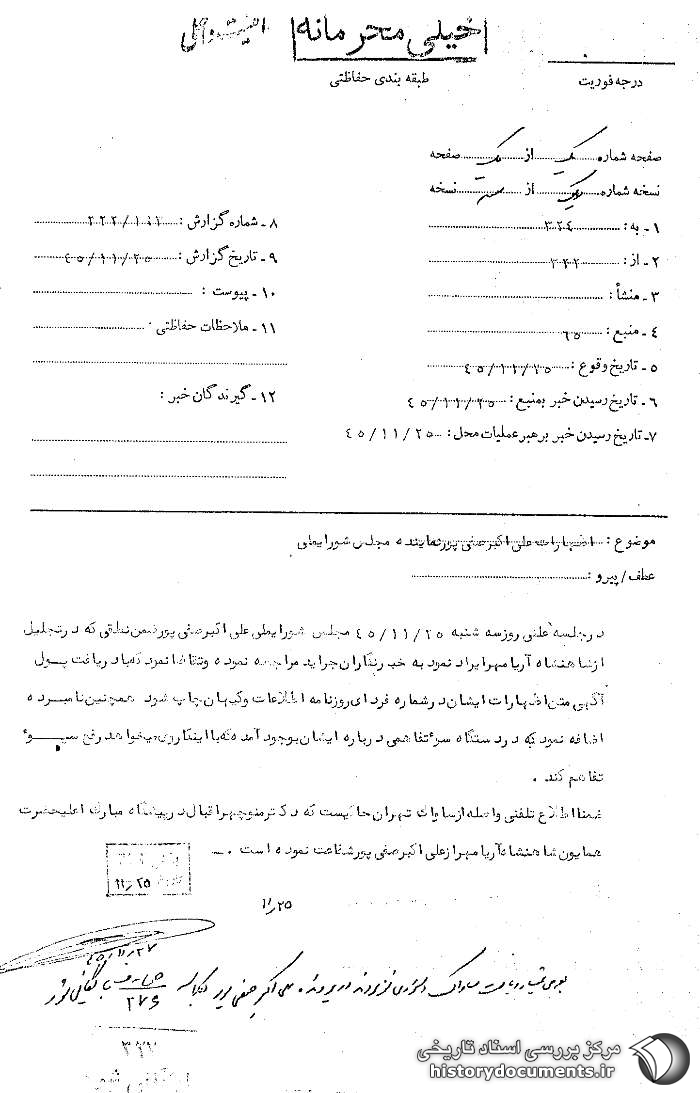 خیلی محرمانه
طبقه بندی حفاظتی
درجه فوریت
صفحه شماره یک از یک صفحه
نسخه شماره یک از سه نسخه
۱ـ به : ۳۲٤
۲ـ از : ۲۲۲
۳ـ منشأ :
٤ـ منبع : ٦٥
٥ـ تاریخ وقوع : ٤٥/۱۱/۲٥
٦ـ تاریخ رسیدن خبر بمنبع : ٤٥/۱۱/۲٥
۷ـ تاریخ رسیدن خبر برهبر عملیات محل : ٤٥/۱۱/۲٥
۸ـ شماره گزارش :
۹ـ تاریخ گزارش : ٤٥/۱۱/۲٥
۱۰ـ پیوست :
۱۱ـ ملاحظات حفاظتی :
۱۲ـ گیرندگان خبر :
موضوع : اظهارات علی اکبر صفی پور نماینده مجلس شورایملی
عطف/پیرو :
درجلسه علنی روز سه شنبه ٤٥/۱۱/۲٥ مجلس شورایملی علی اکبر صفی پور ضمن نطقی که در تجلیل
از شاهنشاه آریامهر ایراد نمود به خبرنگاران جراید مراجعه نموده و تقاضا نمود که با دریافت پول
آگهی متن اظهارات ایشان در شماره فردای روزنامه اطلاعات و کیهان چاپ شود همچنین نامبرده
اضافه نمود که در دستگاه سوء تفاهمی درباره ایشان بوجود آمده که با اینکار وی میخواهد رفع سوء
تفاهم کند .
ضمنا اطلاع تلفنی واصله از ساواك تهران حاکیست که دکتر منوچهر اقبال در پیشگاه مبارك اعلیحضرت
همایون شاهنشاه آریامهر از علی اکبر صفی پور شفاعت نموده است .
۱۱/۲۵
۱۱/۲۵
۴۵/۱۱/۲۷
۲۷۶
مرکز بررسی اسناد تاریخی
historydocuments.ir